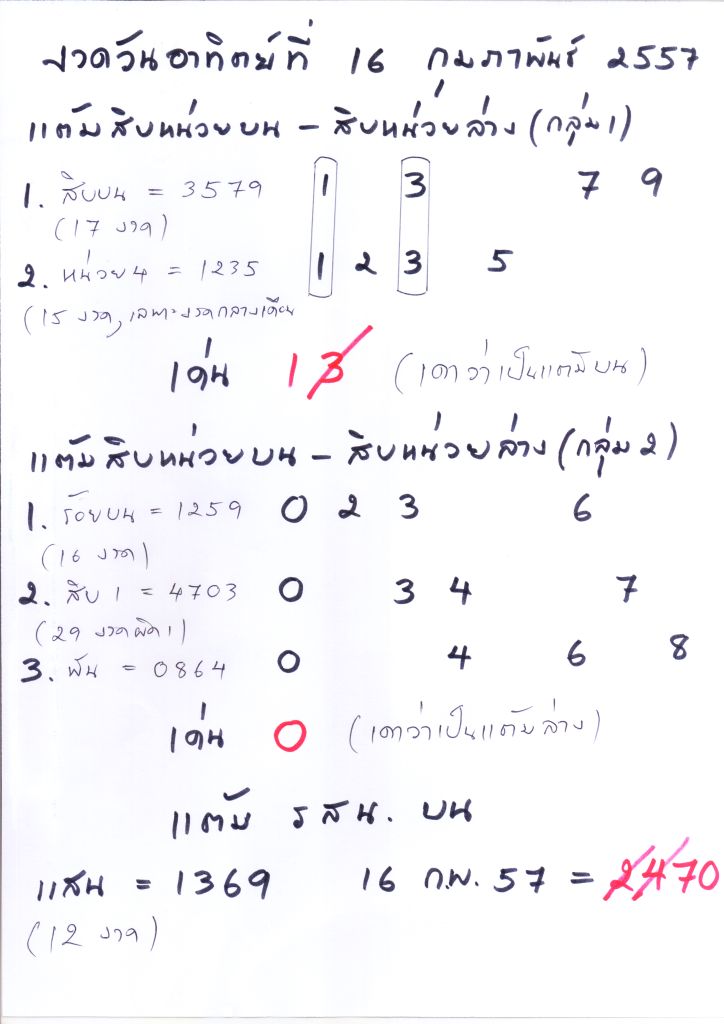 งวดวันอาทิตย์ที่ 16 กุมภาพันธ์ 2557
แต้มสิบหน่วยบน - สิบหน่วยล่าง (กลุ่ม 1)
1. สิบบน = 3579 1 3 7 9
(17 งวด)
2. หน่วย 4 = 1235 1 2 3 5
(15 งวด, เฉพาะงวดกลางเดือน
เด่น 13 (เดาว่าเป็นแต้มบน)
แต้มสิบหน่วยบน - สิบหน่วยล่าง (กลุ่ม 2)
1. ร้อยบน = 1259 0 2 3 6
(16 งวด)
2. สิบ 1 = 4703 0 3 4 7
(29 งวดผิด 1)
3. พัน = 0864 0 4 6 8
เด่น 0 (เดาว่าเป็นแต้มล่าง)
แต้ม รสน. บน
แสน = 1369 16 ก.พ. 57 = 2470
(12 งวด)